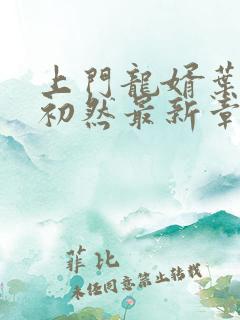 上門龍婿葉
初然最新章
菲比
未任同意禁止转载